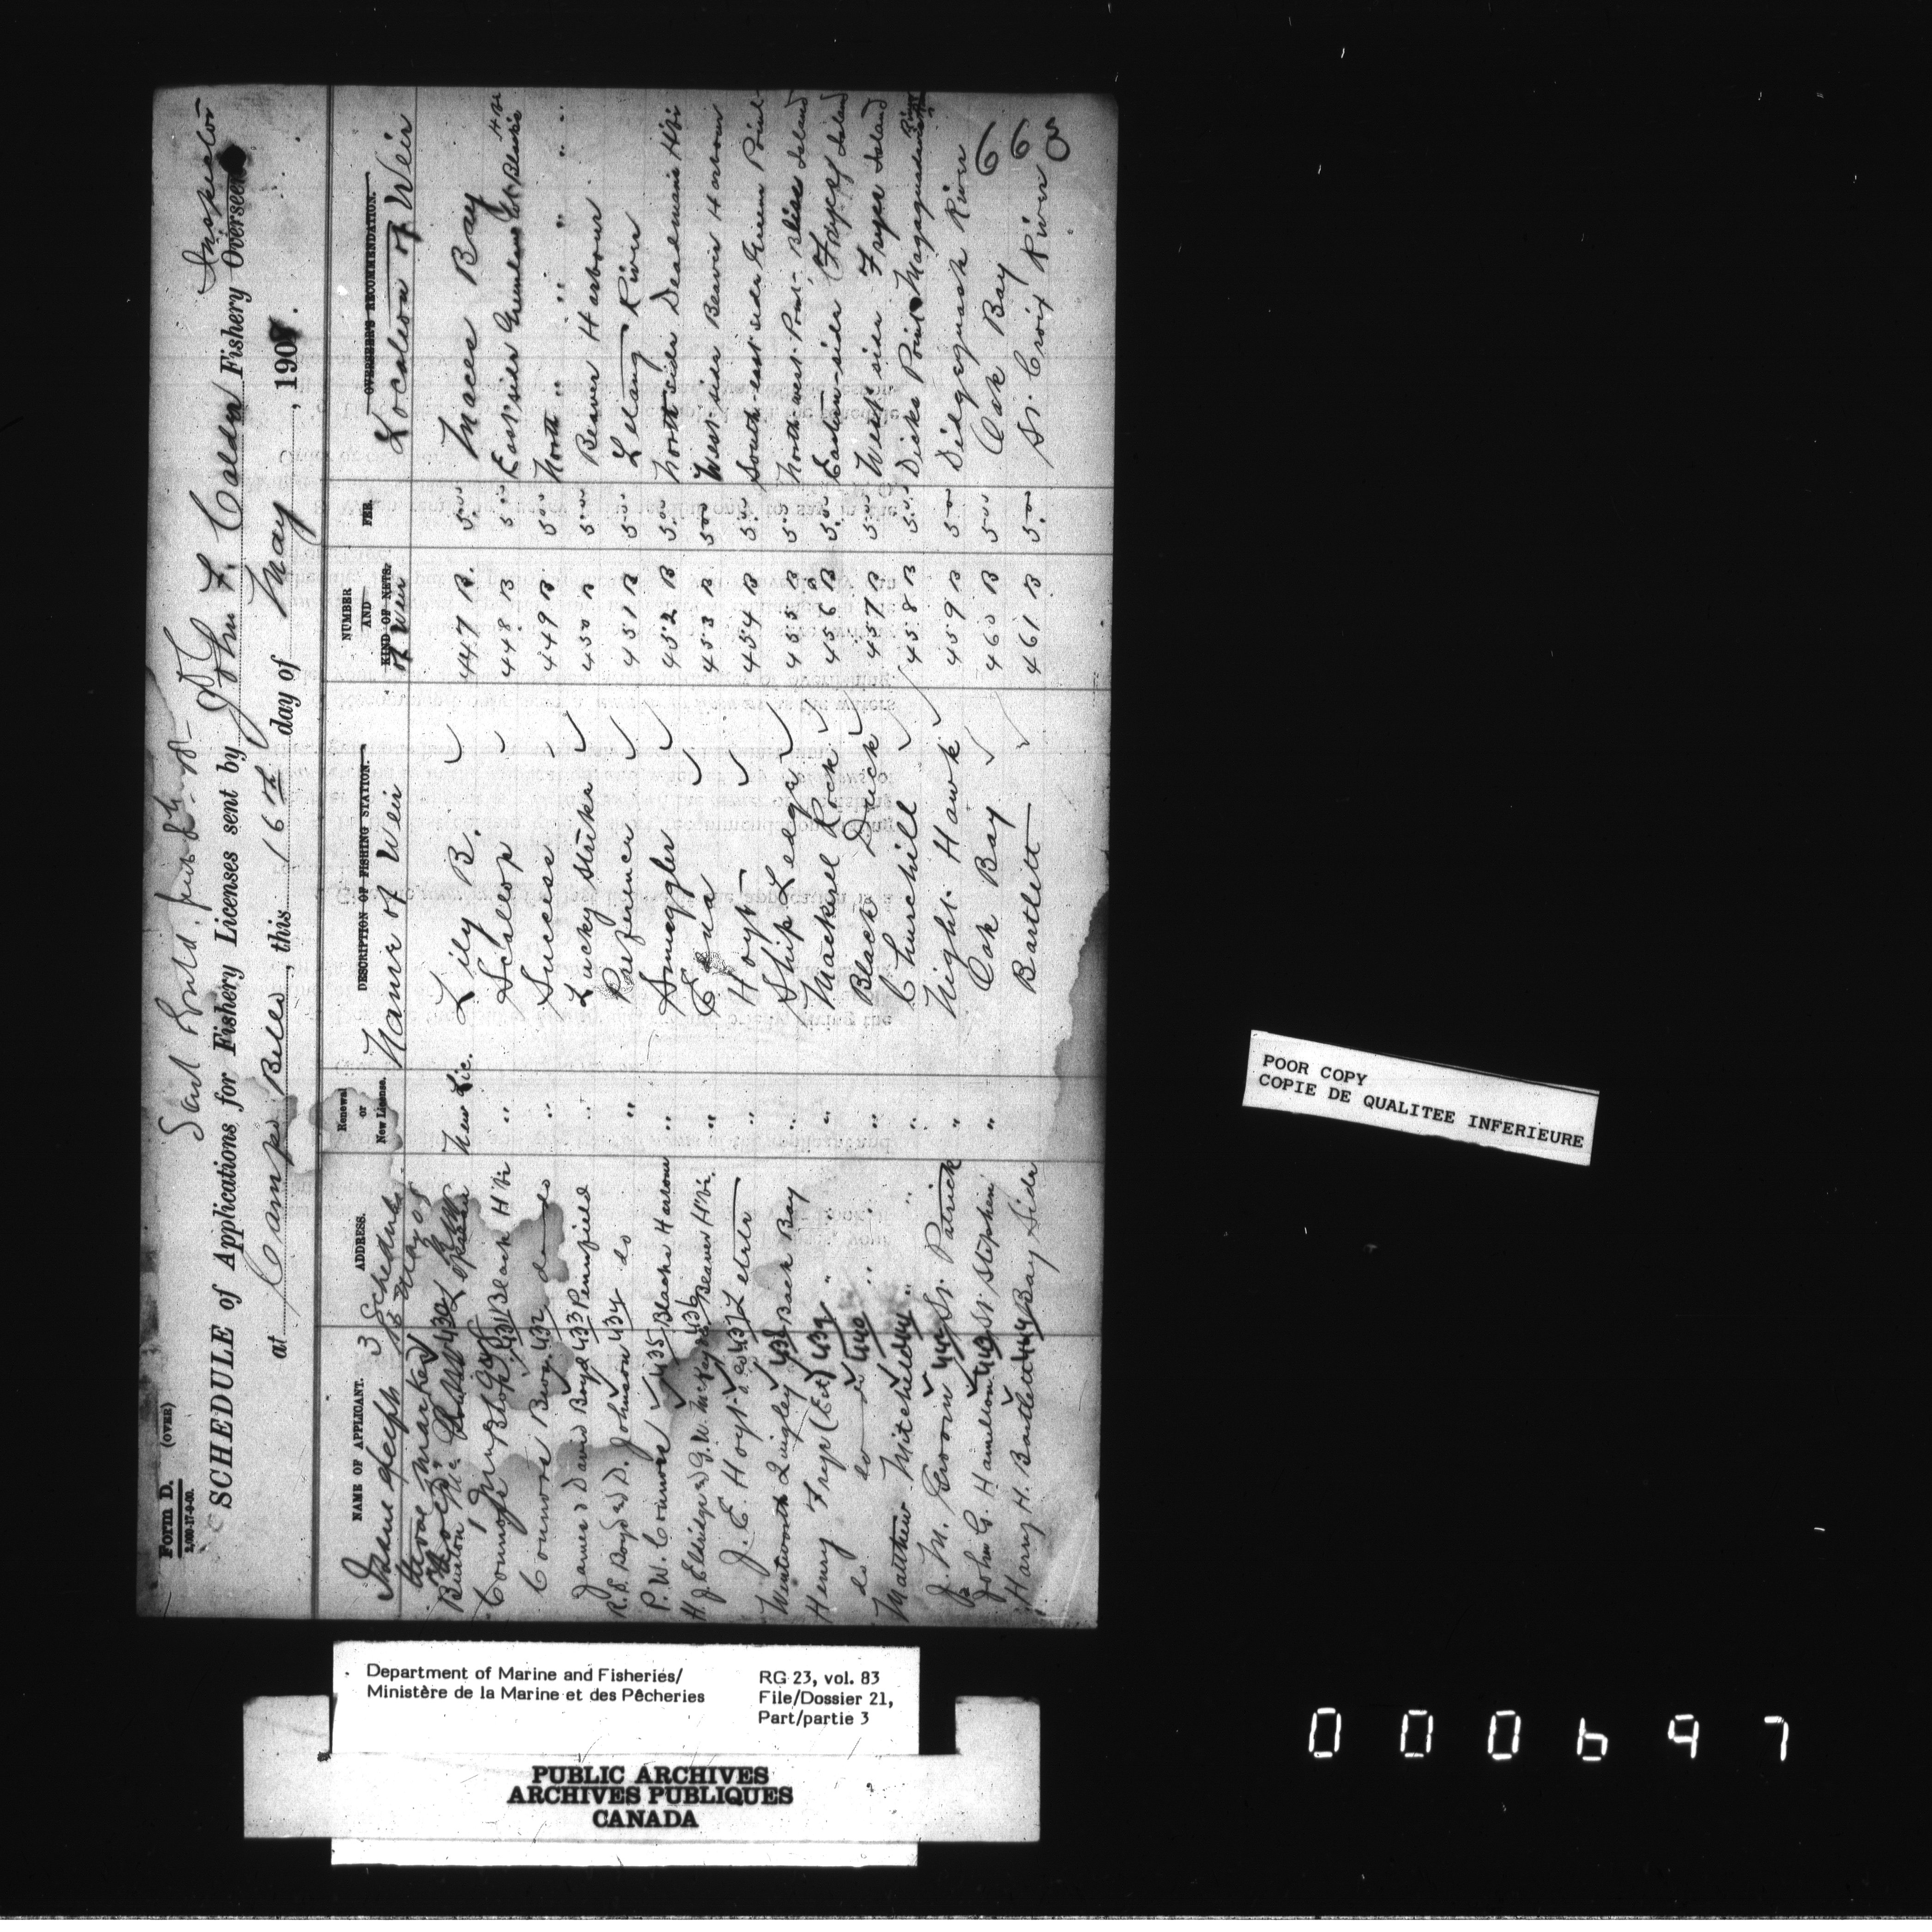 Form D. (OVER)
2,000-17-9-00.
SCHEDULE of Applications for Fishery Licenses sent by John F. Calder Fishery Overseer Inspector
at Campo Bello, this 16th day of May, 190
NAME OF APPLICANT. ADDRESS. Renewal or New License. DESCRIPTION OF FISHING STATION. NUMBER AND KIND OF NETS. FEE. OVERSEER'S RECOMMENDATION.
Name of Weir of Weir Location of Weir
3 Schedules
marked
Burton 430 New Lic. Lily B. 447 B. 5.00 Maces Bay
Connors 431 Blacks Hbr " Scallop 448 B 5.00 East side
Connors Bros. 432 do " Success 449 B 5.00 North " " " "
James & David Boyd 433 Pennfield " Lucky Strike 450 B 5.00 Beaver Harbour
R. E. Boyd & D. Johnson 434 do " Preference 451 B 5.00 Letang River
P. W. Connors 435 Blacks Harbour " Smuggler 452 B 5.00 North side Deadmans Hbr
H. J. Eldridge & G. W. McKay 436 Beaver Hbr. " Eva 453 B 5.00 West side Beaver Harbour
J. E. Hoyt 437 Letete " Hoyt 454 B 5.00 South-east side Greens Point
Wentworth Quigley 438 Back Bay " Ship Ledge 455 B 5.00 North west Point Bliss Island
Henry Frye (Est) 439 " " Mackerel Rock 456 B 5.00 Eastern side (Fryes) Island
do do 440 " " " Black Duck 457 B 5.00 West side Frye Island
Matthew Mitchell 441 " " " Churchill 458 B 5.00 Dicks Point Magaguadavic River
J. M. Groom 442 St. Patrick " Night Hawk 459 B 5.00 Didgeguash River
John G. Hamilton 443 St. Stephen " Oak Bay 460 B 5.00 Oak Bay
Harry H. Bartlett 444 Bay Side Bartlett 461 B 5.00 St. Croix River
665
POOR COPY
COPIE DE QUALITEE INFERIEURE
Department of Marine and Fisheries/
Ministère de la Marine et des Pêcheries
RG 23, vol. 83
File/Dossier 21,
Part/partie 3
PUBLIC ARCHIVES
ARCHIVES PUBLIQUES
CANADA
000697